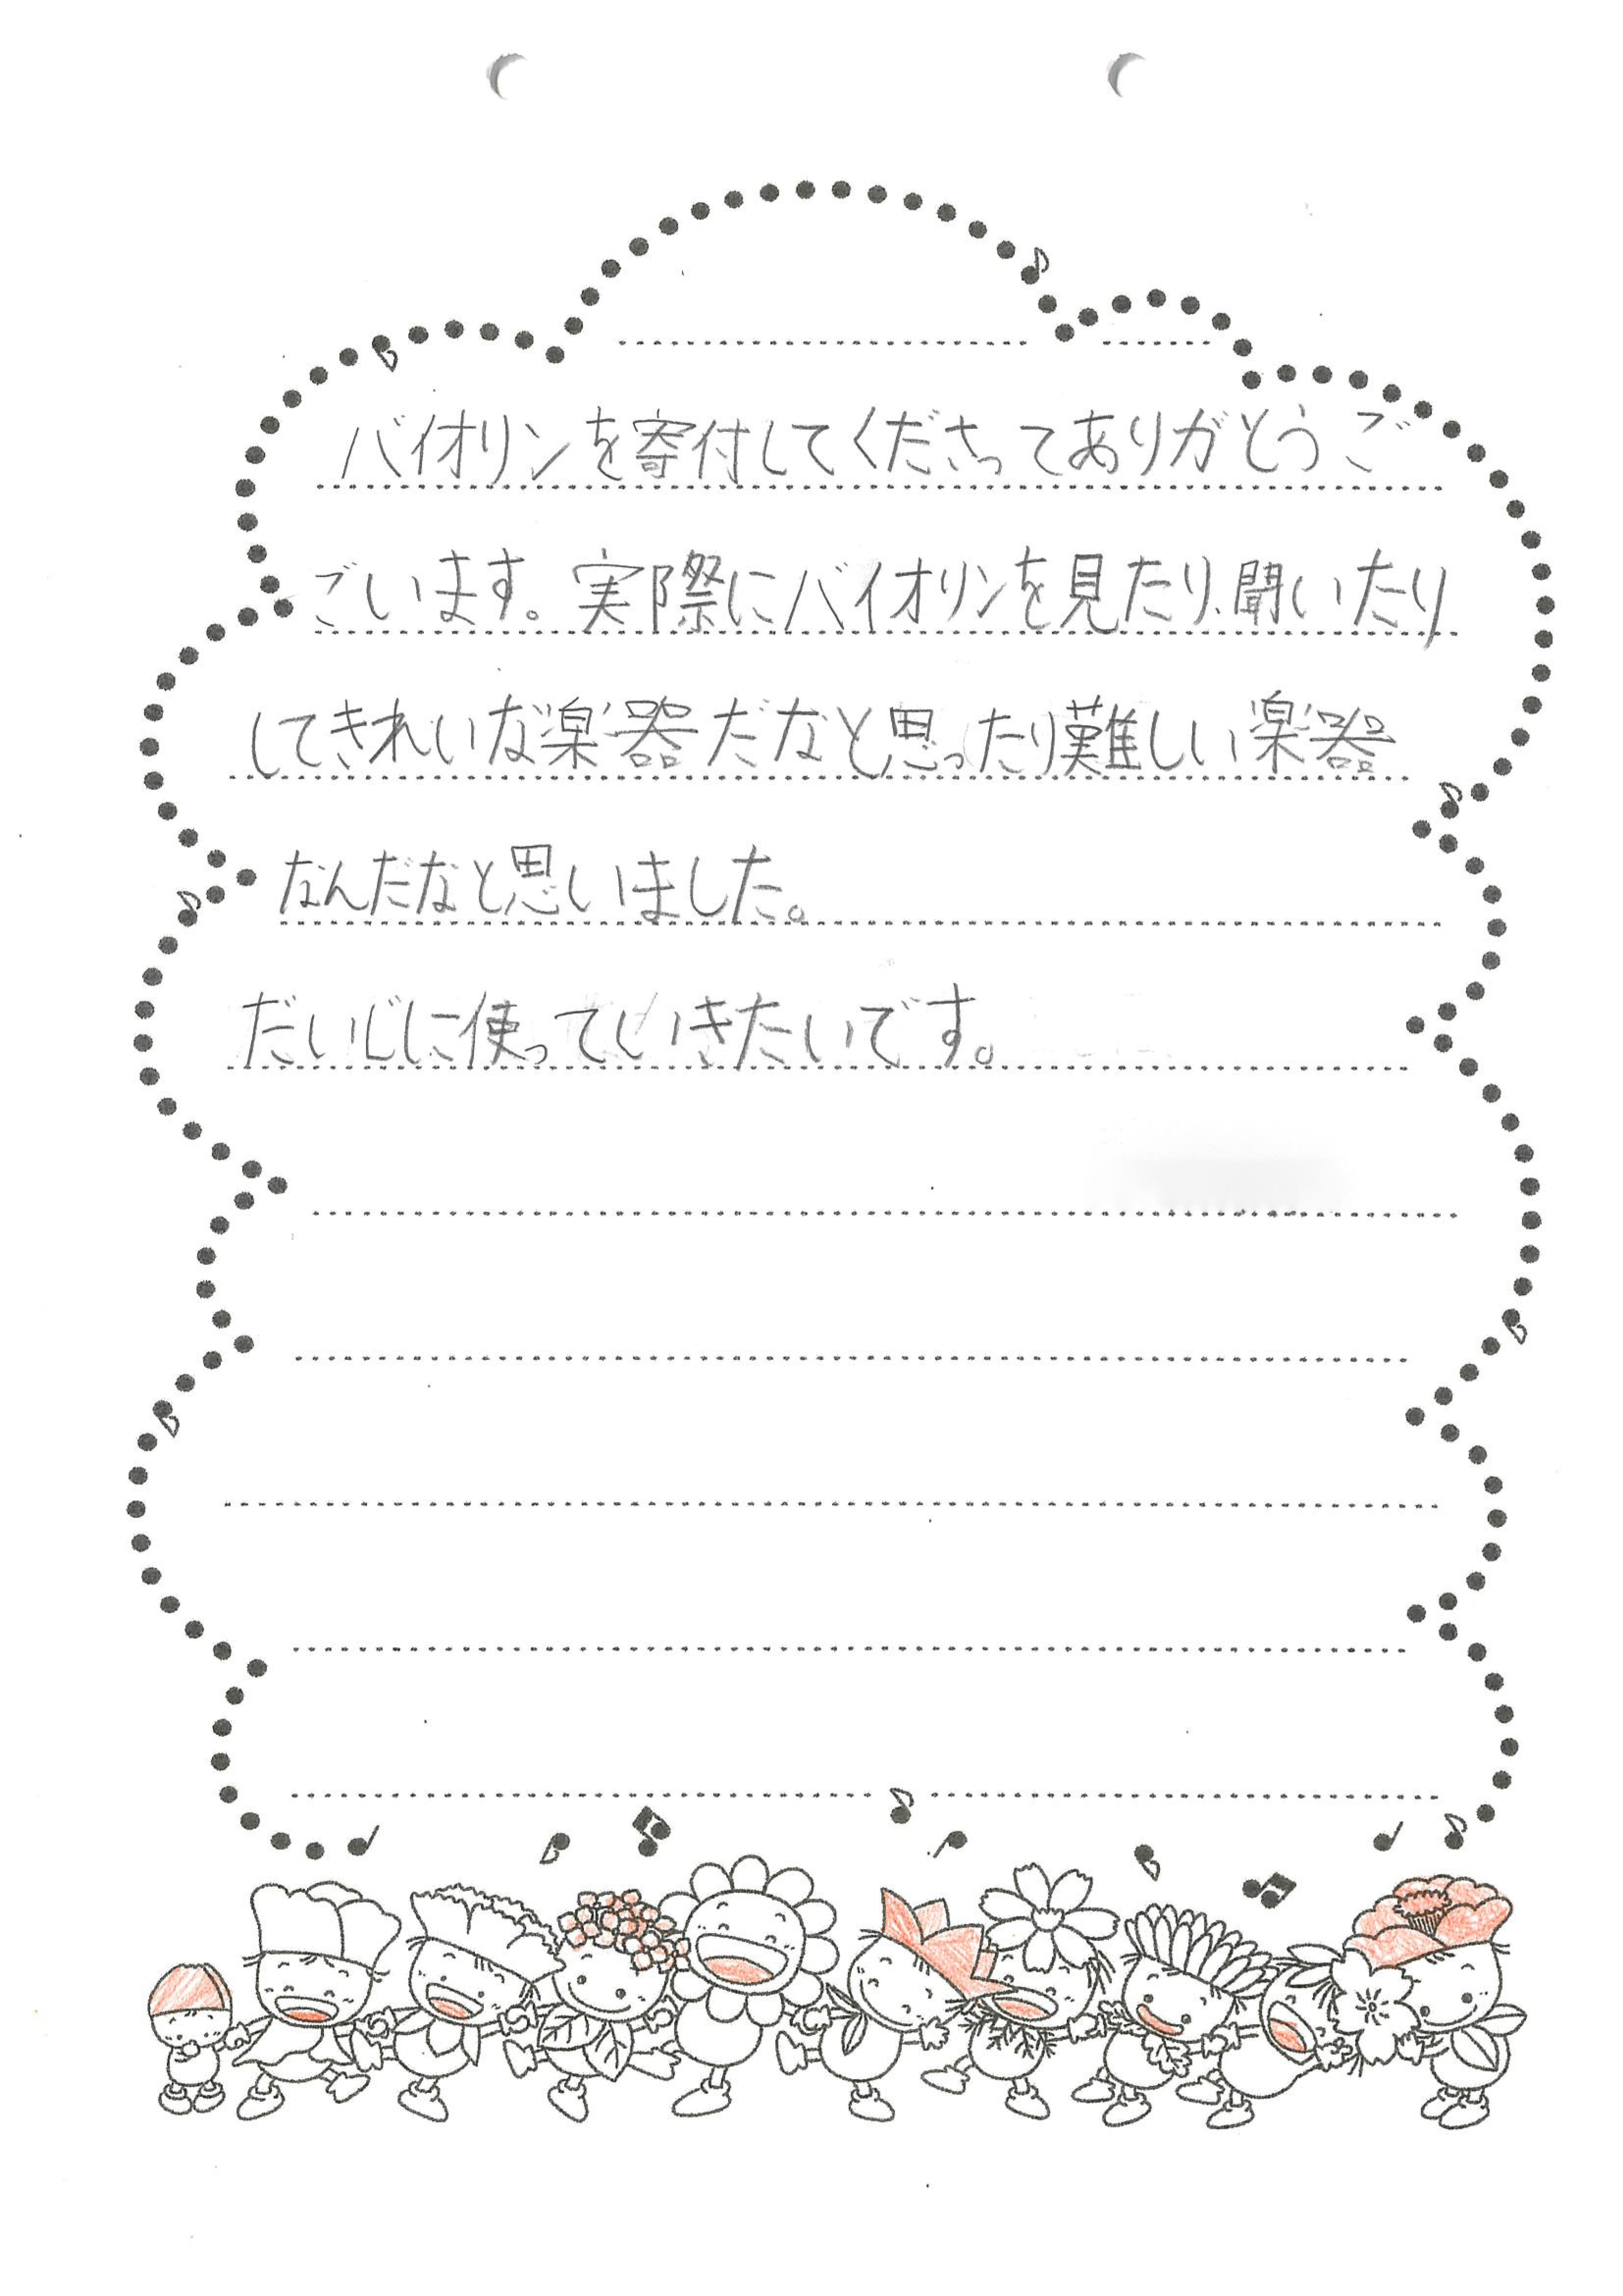 バイオリンを寄付してくださってありがとうご
ございます。実際にバイオリンを見たり、聞いたり
してきれいな楽器だなと思ったり難しい楽器
なんだなと思いました。
だいじに使っていきたいです。